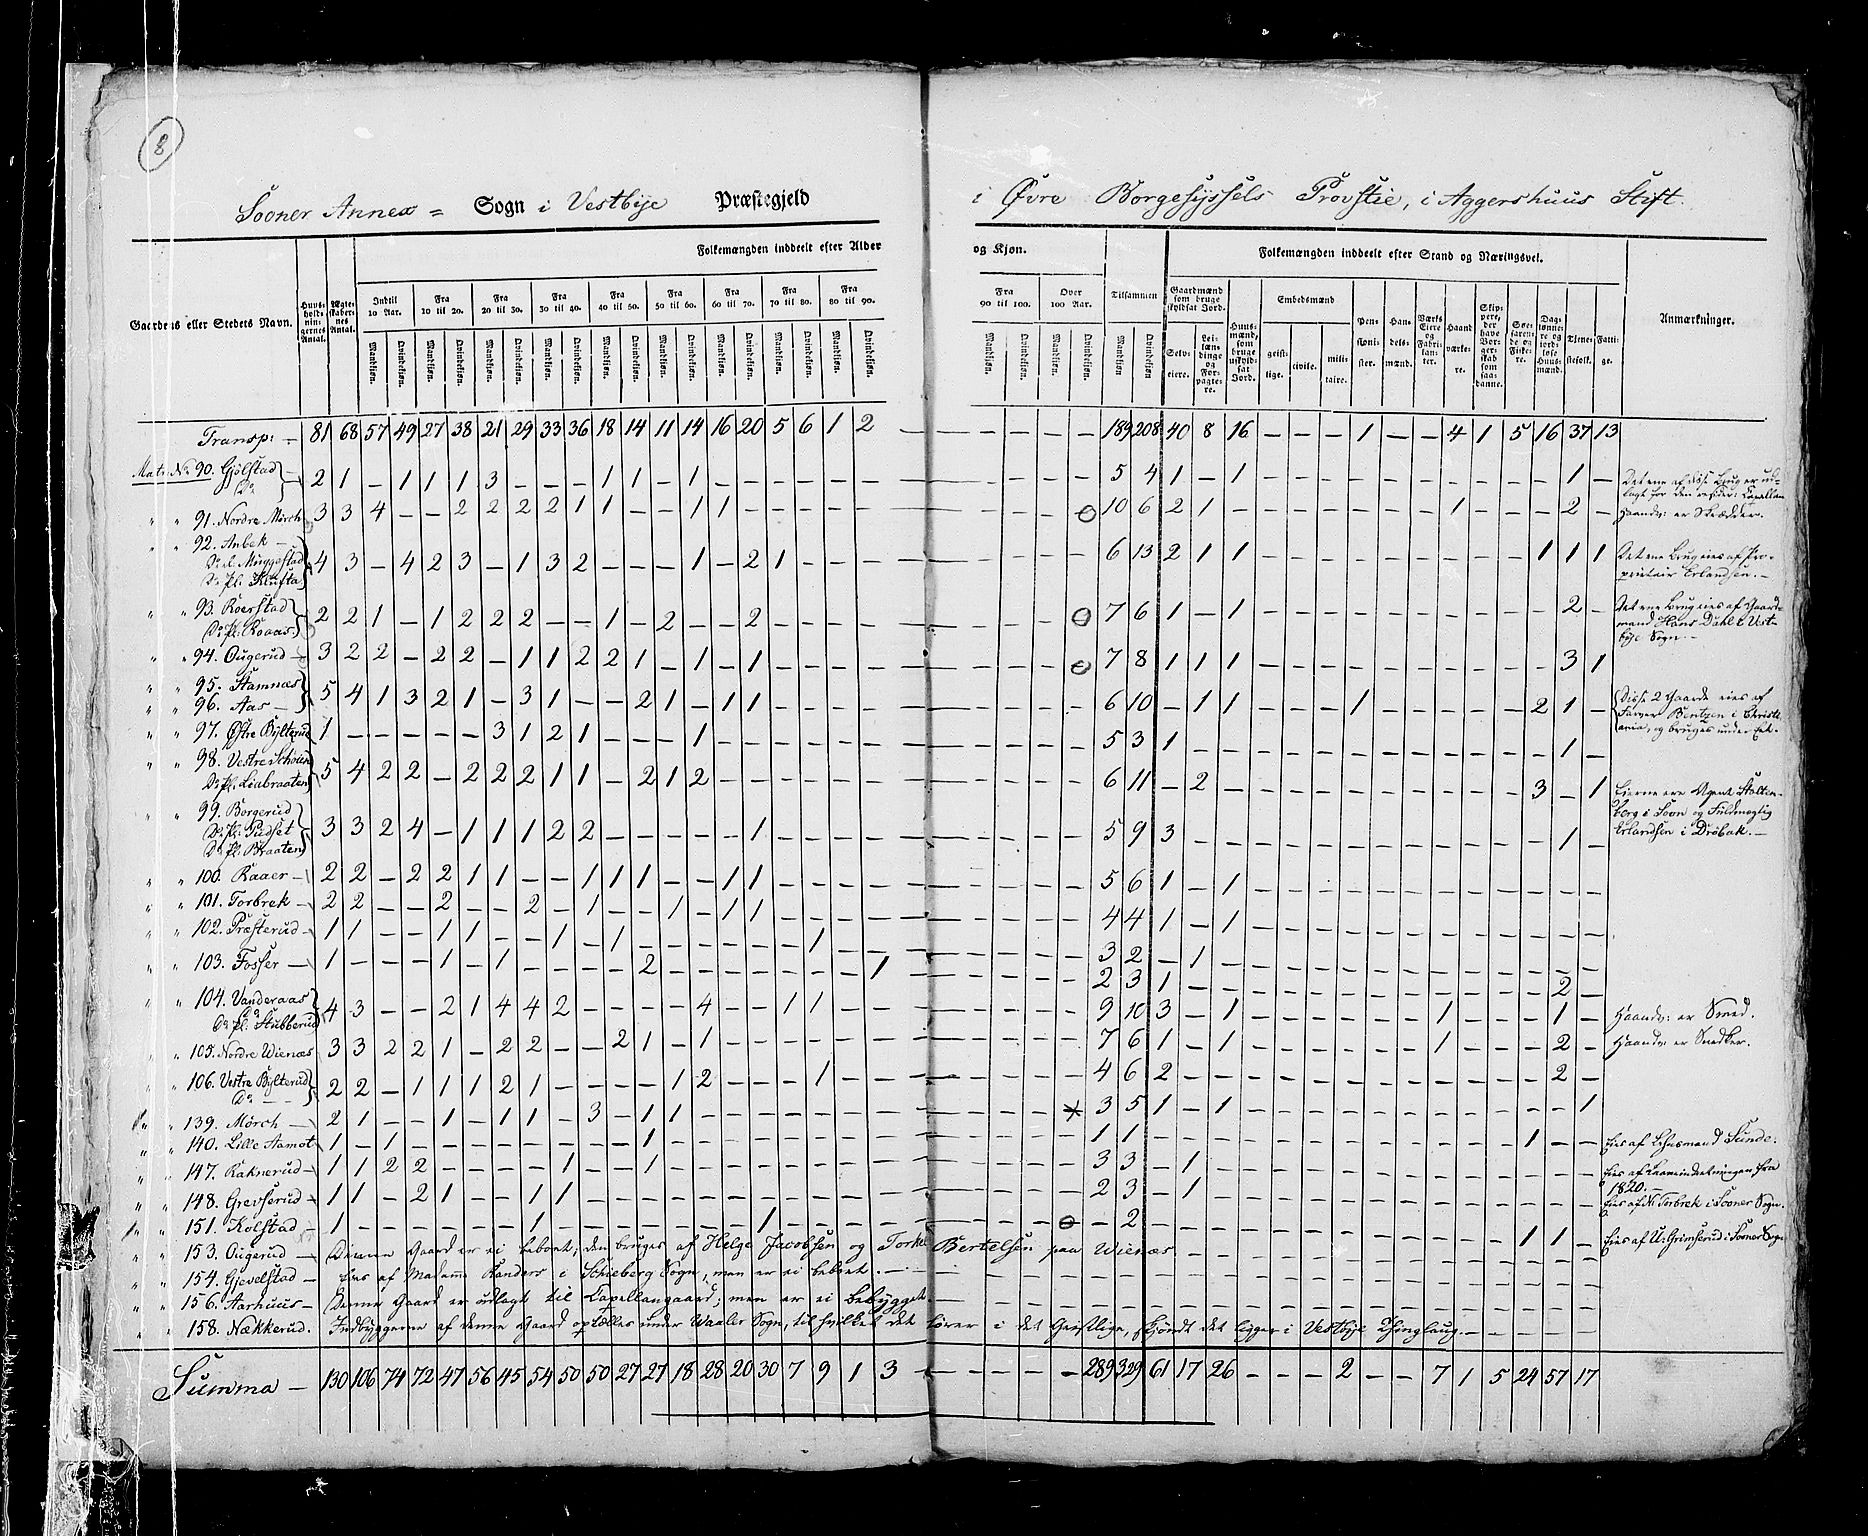 8
Sooner Annex = Sogn i Vestbÿe Præstegjeld i Øvre Borgesÿssels Provstie, i Aggershuus Stift.
Folkemængden inddeelt efter Alder og Kjøn. Folkemængden inddeelt efter Stand og Næringsvei.
Gaardens eller Stedets Navn. Huusholdningernes Antal. Ægteskabernes Antal. Indtil 10 Aar. Fra 10 til 20. Fra 20 til 30. Fra 30 til 40. Fra 40 til 50. Fra 50 til 60. Fra 60 til 70. Fra 70 til 80. Fra 80 til 90. Fra 90 til 100. Over 100 Aar. Tilsammen
Gaardmænd som bruge skyldsat Jord. Selveiere. Leilændinge og Forpagtere. Huusmænd, som bruge uskyldsat Jord. Embedsmænd geistlige. civile. militaire. Pensionister. Handelsmænd. Værks Eiere og Fabrikanter. Haandværkere. Skippere, der have Borgerskab som saadanne. Søefarende og Fiskere. Daglønnere og jordløse Huusmænd. Tjenestefolk. Fattige. Anmærkninger.
Mandkjøn. Qvindekjøn. Mandkjøn. Qvindekjøn. Mandkjøn. Qvindekjøn. Mandkjøn. Qvindekjøn. Mandkjøn. Qvindekjøn. Mandkjøn. Qvindekjøn. Mandkjøn. Qvindekjøn. Mandkjøn. Qvindekjøn. Mandkjøn. Qvindekjøn. Mandkjøn. Qvindekjøn. Mandkjøn. Qvindekjøn. Mandkjøn. Qvindekjøn.
Transp: - 81 68 57 49 27 38 21 29 33 36 18 14 11 14 16 20 5 6 1 2 - - - - - 189 208 40 8 16 - - - 1 - - 4 1 5 16 37 13
Matr. No 90. Gjölstad Do 2 1 - 1 1 1 3 - - - 1 1 - 1 - - - - - - - - - - 5 4 1 - 1 - - - - - - - - - - 1 -
" " 91. Nordre Mörch 3 3 4 - - 2 2 2 2 1 1 - - 1 1 - - - - - - - - O 10 6 2 1 - - - - - - - 1 - - - 2 - Haandv: er Skrædder.
" " 92. Anbek - Do pl. Muggestad Do pl. Klufta 4 3 - 4 2 3 - 1 3 2 - - - 1 - 2 1 - - - - - - - 6 13 2 1 1 - - - - - - - - - 1 1 1 Det ene Brug eies af Proprietair Erlandsen. -
" " 93. Roerstad Do pl. Roaas 2 2 1 - 1 2 2 2 - - 1 - 2 - - 2 - - - - - - - O 7 6 1 - 1 - - - - - - - - - - 2 - Det ene Brug eies af Gaardmand Hans Dahl i Vestbÿe Sogn. -
" " 94. Ougerud - 3 2 2 - 2 2 - 1 1 2 2 1 - 1 - 1 - - - - - - - O 7 8 1 1 1 - - - - - - - - - - 3 1
" " 95. Stamnæs
" " 96. Aas - 5 4 1 3 2 1 - 3 1 - - 2 1 - 1 1 - - - - - - - - 6 10 - 1 1 - - - 1 - - - - - 2 1 - Disse 2 Gaarde eies af Farver Bentzen i Christiania, og bruges under Eet.
" " 97. Østre Bÿlterud 1 - - - - - 3 1 2 1 - - - 1 - - - - - - - - - - 5 3 1 - - - - - - - - - - - - 1 -
" " 98. Vestre Schöien Do pl. Liabraaten 5 4 2 2 - 2 2 2 1 1 - 2 1 2 - - - - - - - - - - 6 11 - 2 - - - - - - - - - - 3 - 1 Eierne ere Agent Stoltenberg i Soon og Fuldmegtig Erlandsen i Dröbak. -
" " 99. Borgerud Do pl. Pudset Do pl. Braaten 3 3 2 4 - 1 1 1 2 2 - - - - - 1 - - - - - - - - 5 9 3 - - - - - - - - - - - - 1 -
" " 100. Raaer - 2 2 - 2 2 1 1 - - 1 1 1 - - 1 1 - - - - - - - - 5 6 1 - 1 - - - - - - - - - - - -
" " 101. Torbrek - 2 2 - - 2 - - 2 - 1 - - 1 - 1 1 - - - - - - - - 4 4 1 - 1 - - - - - - - - - - - -
" " 102. Præsterud - 1 1 - - 1 1 - - 1 - 1 - - - - - - 1 - - - - - - 3 2 - 1 - - - - - - - - - - - - -
" " 103. Fosser - 1 - - - 1 - 1 - - - - 2 - - - - - - - 1 - - - - 2 3 1 - - - - - - - - - - - - 2 -
" " 104. Vanderaas Do Do pl. Stubberud 4 3 - - 2 1 4 4 2 - - - - 4 - - 1 1 - - - - - - 9 10 3 - 1 - - - - - - 1 - - - 1 - Haandv: er Smed.
" " 105. Nordre Wienæs 3 3 2 2 1 - 2 2 - - 2 1 - 1 - - - - - - - - - - 7 6 1 - 1 - - - - - - 1 - - - 2 - Haandv: er Snedker.
" " 106. Vestre Bÿlterud Do - - 2 2 - 1 1 1 2 1 - - - - 1 2 - - - 1 - - - - - - 4 6 2 - - - - - - - - - - - - 2 -
" " 139. Mörch - 2 1 - - 1 - 1 1 - 3 - 1 1 - - - - - - - - - - * 3 5 1 - 1 - - - - - - - - - - - 1
" " 140. Lille Aamot 1 - 1 - - - - - - - - 1 - - - - - - - - - - - - 1 1 - - - - - - - - - - - - 1 - - Eies af Lehnsmand Sunde.
" " 147. Raknerud - 1 1 2 2 - - - - 1 - - 1 - - - - - - - - - - - - 3 3 - 1 - - - - - - - - - - - - -
1820. -
" " 148. Grevserud - 1 1 - 2 1 - - 1 1 - - - - - - - - - - - - - - - 2 3 - 1 - - - - - - - - - - - - - Eies af No Torbrek i Sooner Sogn.
" " 151. Kolstad - 1 - - - - - - 1 - - - - - - - 1 - - - - - - O - 2 - - - - - - - - - - - - 1 1 - Eies af U. Grimserud i Sooner Sogn
" " 153. Ougerud - Denne Gaard er ei beboet; den bruges af Helge Jacobsen og Torkel Bertelsen paa Wienæs.
" " 154. Gjevelstad - Eies af Madame Randers i Schieberg Sogn, men er ei beboet. - -
" " 156. Aarhuus - Denne Gaard er udlagt til Capellangaard; men er ei bebÿgget. -
" " 158. Nækkerud. Indbÿggerne af denne Gaard optælles under Waaler Sogn, til hvilket det hörer i det Geistlige, skjöndt det ligger i Vestbÿe Thinglaug. -
Summa - 130 106 74 72 47 56 45 54 50 50 27 27 18 28 20 30 7 9 1 3 - - - - - 289 329 61 17 26 - - - 2 - - 7 1 5 24 57 17